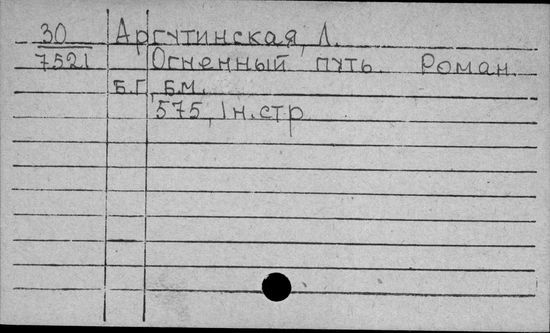 30 Аргутинская, Л.
7521 Огненный путь. Роман.
Б.Г., Б.М.
575, 1н. стр